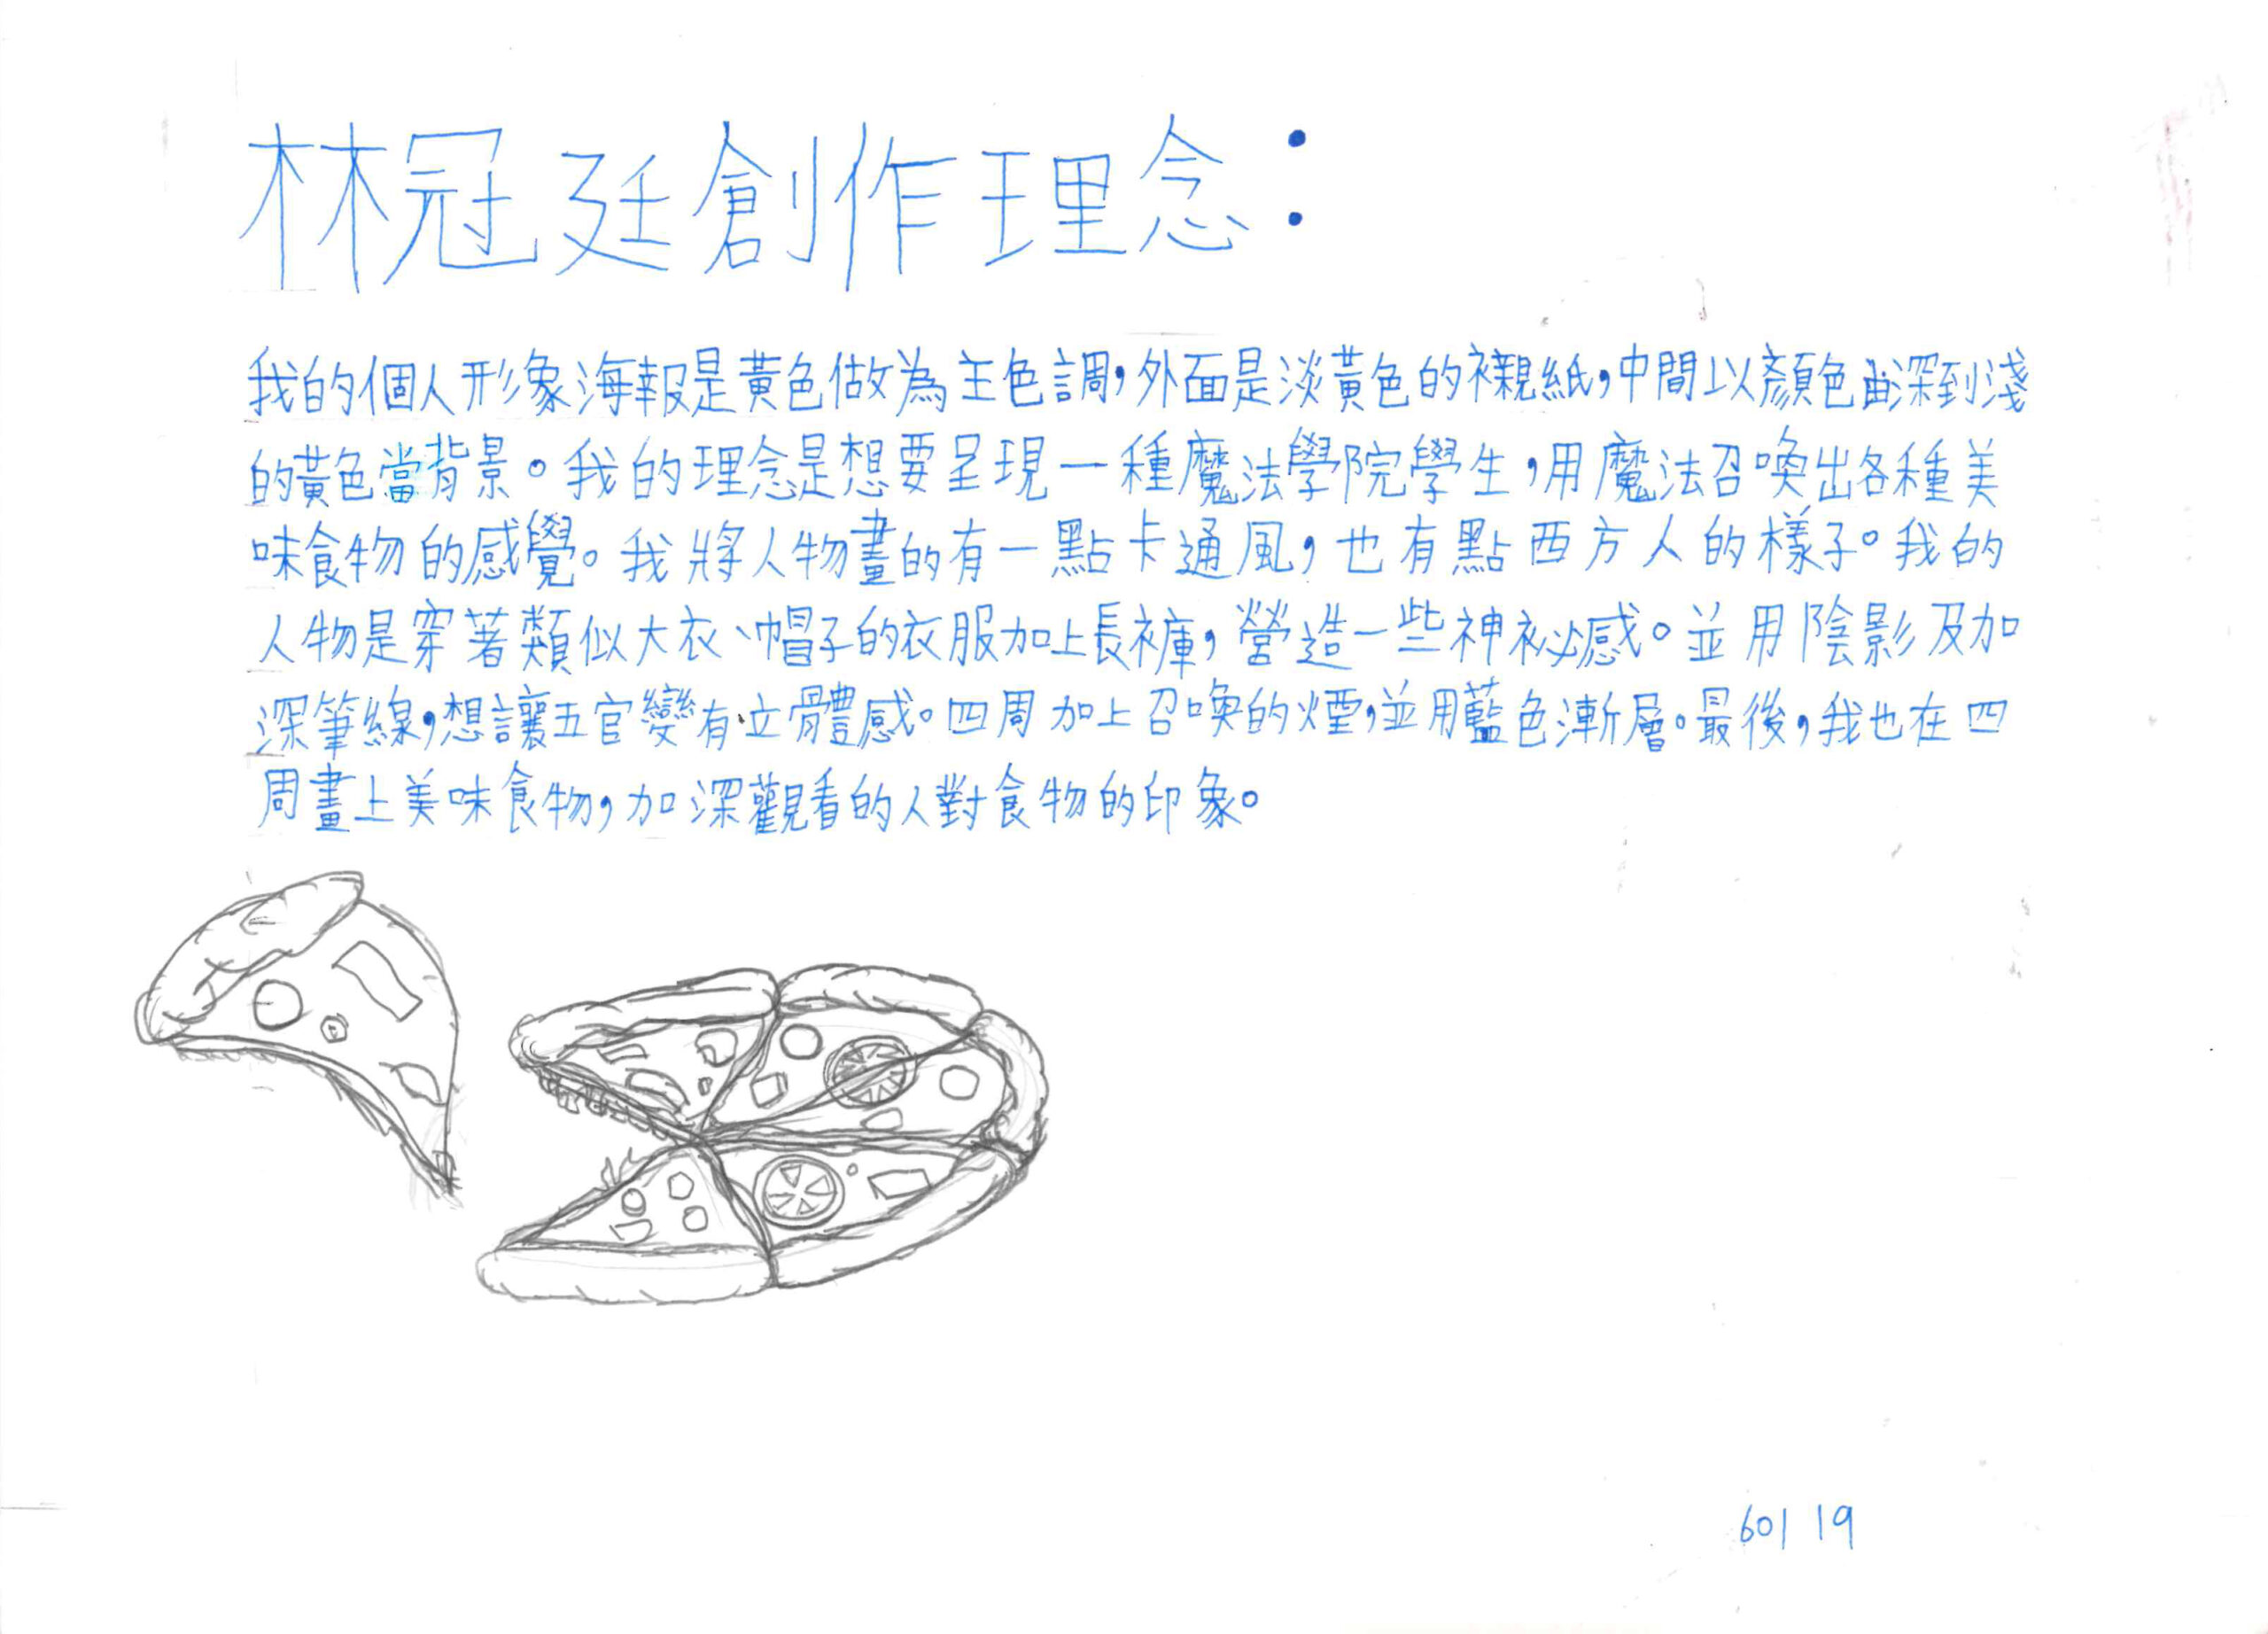 林冠廷創作理念：
我的個人形象海報是黃色做為主色調，外面是淡黃色的襯紙，中間以顏色由深到淺
的黃色當背景。我的理念是想要呈現一種魔法學院學生，用魔法召喚出各種美
味食物的感覺。我將人物畫的有一點卡通風，也有點西方人的樣子。我的
人物是穿著類似大衣、帽子的衣服加上長褲，營造一些神祕感。並用陰影及加
深筆線，想讓五官變有立體感。四周加上召喚的煙，並用藍色漸層。最後，我也在四
周畫上美味食物，加深觀看的人對食物的印象。
601 19